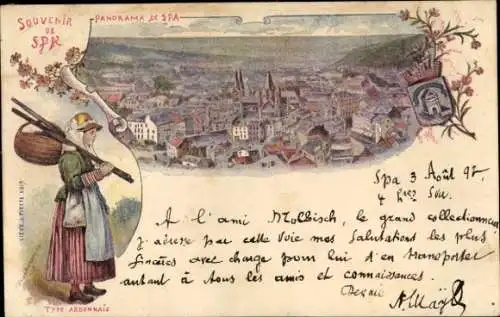 SOUVENIR
DE
SPA
PANORAMA DE SPA
Spa 3 Août 97
4 hres Soir
A l'ami Molbisch, le grand collectionneur
j'adresse par cette voie mes Salutations les plus
sincères avec charge pour lui d'en transporter
autant à tous les amis et connaissances.
TYPE ARDENNAIS